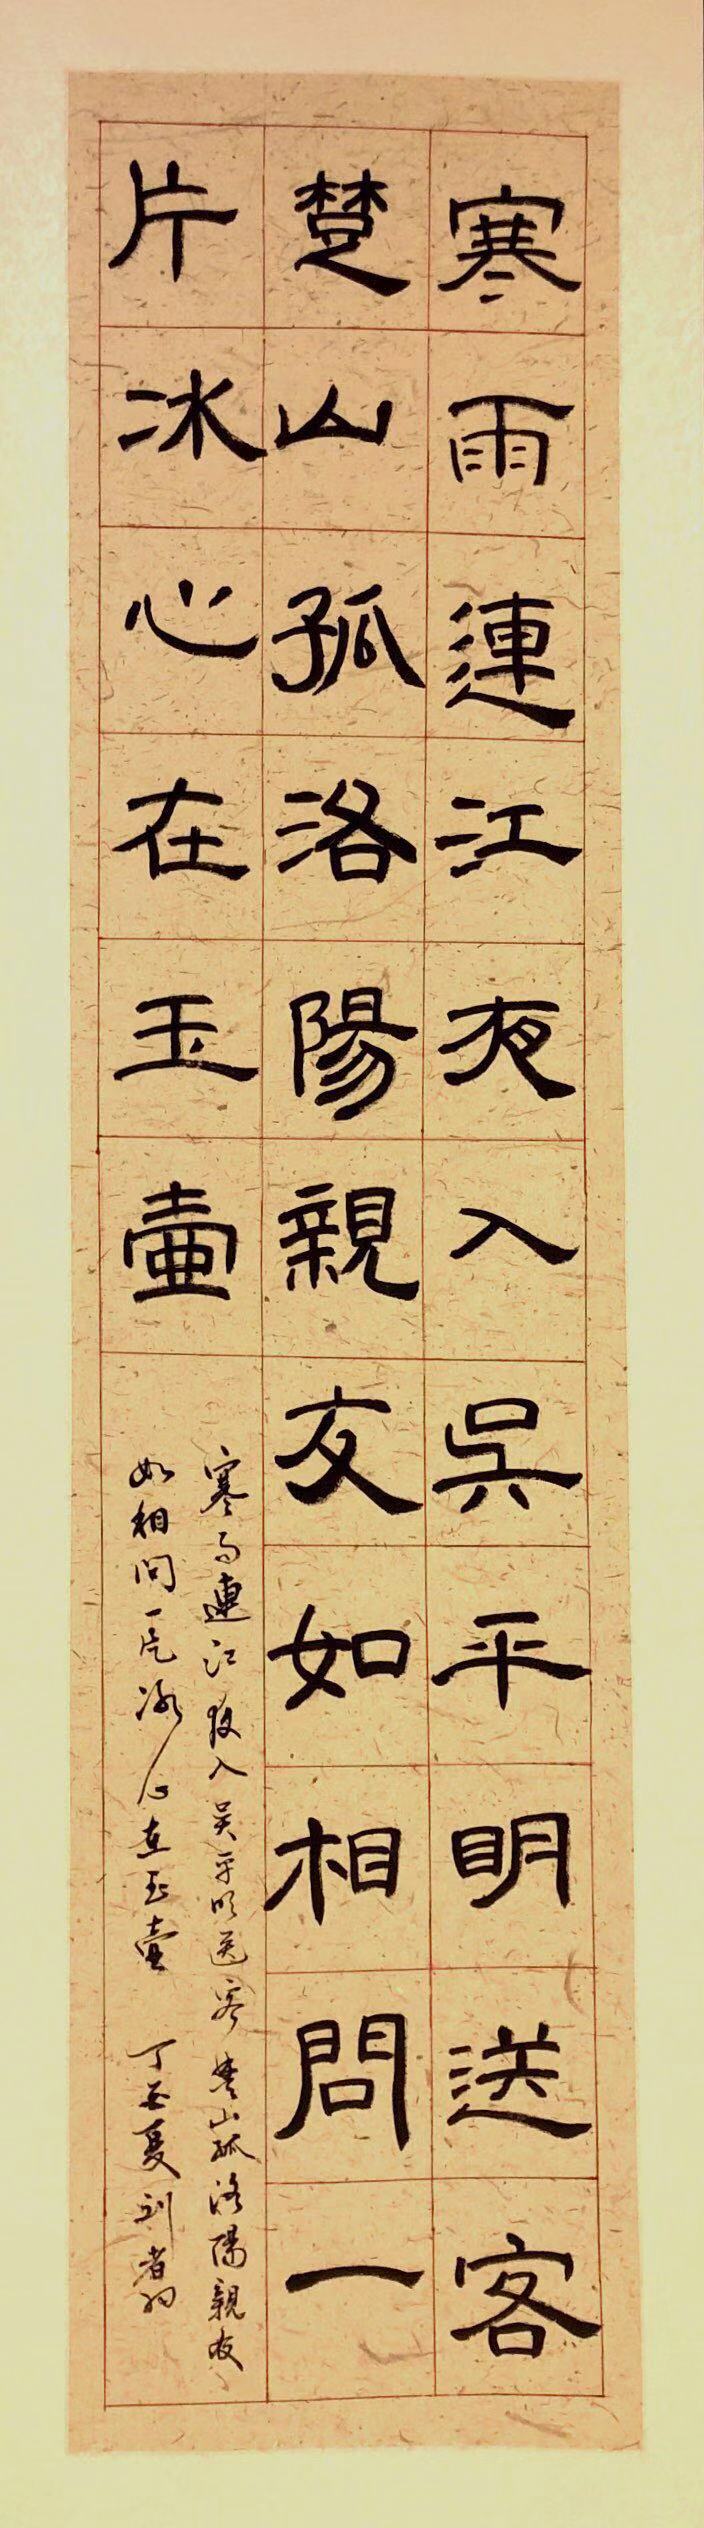 寒雨連江夜入吳平明送客
楚山孤洛陽親友如相問一
片冰心在玉壺
寒雨連江夜入吳平明送客楚山孤洛陽親友
如相問一片冰心在玉壺 丁酉夏